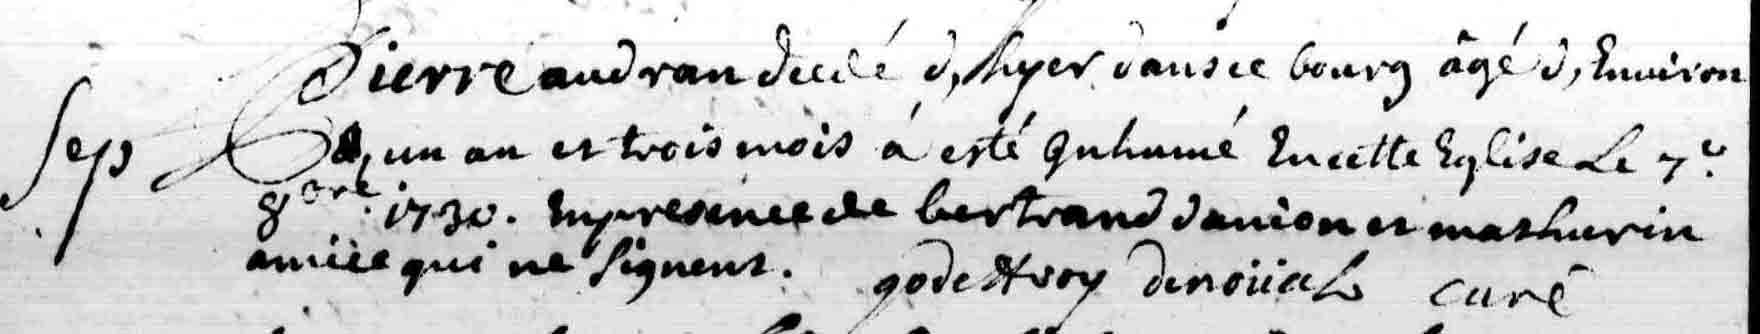 Pierre audran decdé d,hyer dans ce bourg âgé d,Environ
Sep
un an et trois mois á esté Inhumé En cette Eglise Le 7.e
8bre. 1730. En presence de bertrand danion et mathurin
amice qui ne signent. godeffroy denoüal curé